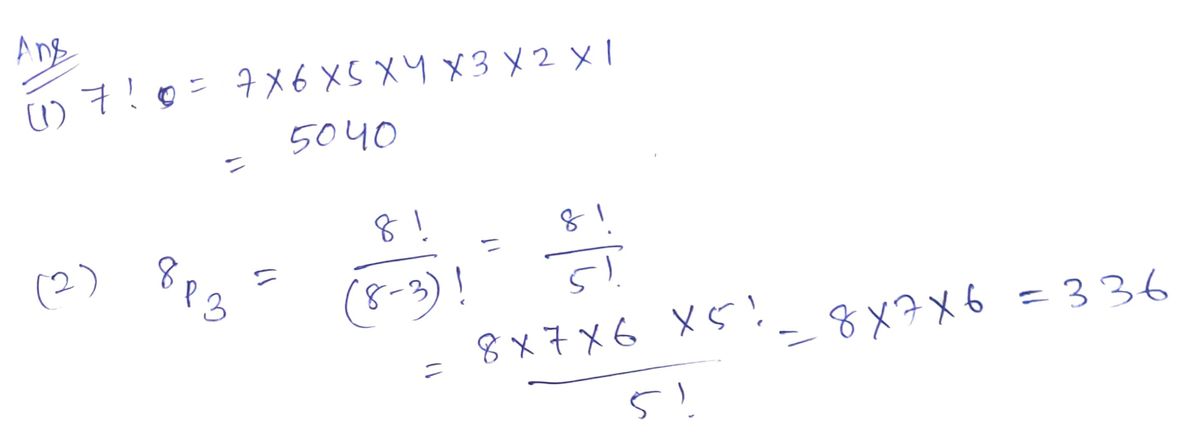 Ans
(1) 7! = 7×6×5×4×3×2×1
= 5040
(2) 8P3 = 8!/(8-3)! = 8!/5!
= 8×7×6×5!/5! = 8×7×6 = 336